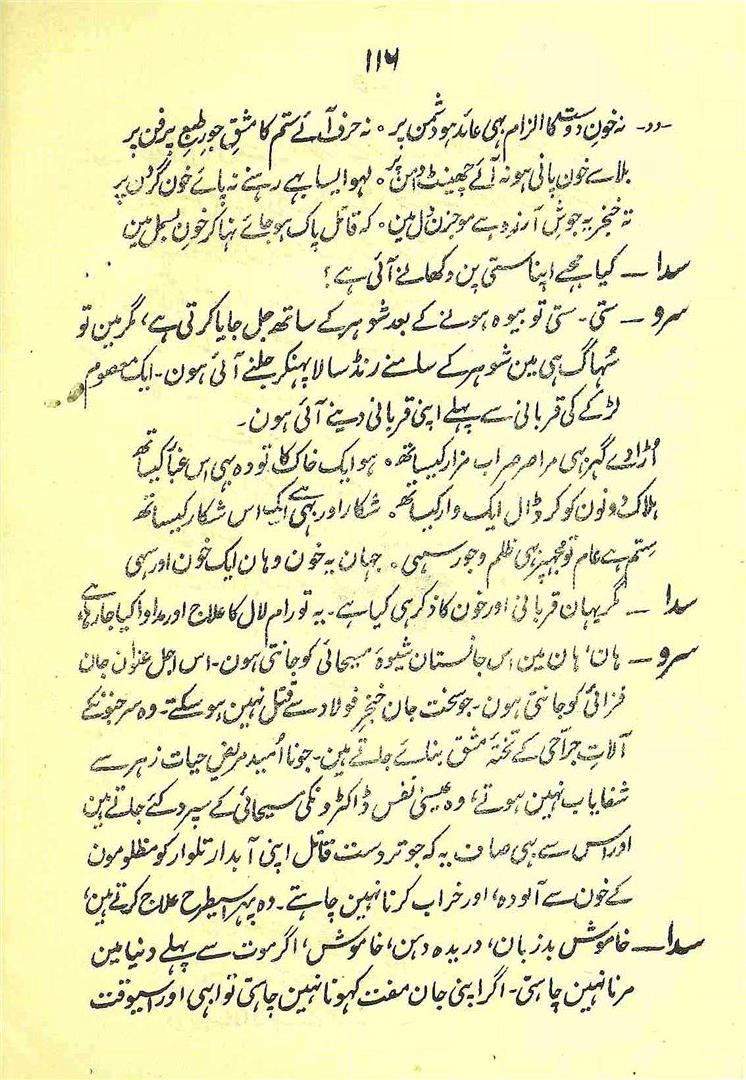 ۱۱۶
-دد- نہ خونِ دوست کا الزام بہی عائد ہو دشمن پر ٭ نہ حرف آئے ستم کا مشقِ جورِ طبعِ پر فن پر
بلا سے خون پانی ہو نہ آئے چھینٹ دامن پر ٭ لہو ایسا بہے رہنے نہ پائے خون گردن پر
تہ خنجر یہ جوشِ آرزو ہے موجزن دل مین ٭ کہ قاتل پاک ہو جائے نہا کر خونِ بسمل مین
سدا — کیا مجھے اپنا ستی پن دکھانے آئی ہے؟
سرو — ستی - ستی تو بیوہ ہونے کے بعد شوہر کے ساتھ جل جایا کرتی ہے، مگر مین تو
سُہاگ ہی مین شوہر کے سامنے رنڈ سالا پہنکر جلنے آئی ہون - ایک معصوم
لڑکے کی قربانی سے پہلے اپنی قربانی دینے آئی ہون -
اُڑا دے گہر بہی مرا صرصر اب مزار کیساتھ ٭ ہو ایک خاک کا تودہ بہی اس غبار کیساتھ
ہلاک دونون کو کر ڈال ایک وار کیساتھ ٭ شکار اور بہی ہے اک اس شکار کیساتھ
ستم ہے عام تو مجہپر بہی ظلم و جور سہی ٭ جہان یہ خون وہان ایک خون اور سہی
سدا — مگر یہان قربانی اور خون کا ذکر ہی کیا ہے - یہ تو رام لال کا علاج اور مداوا کیا جا رہا ہے،
سرو — ہان، ہان مین اس جانستان شیوۂ مسیحائی کو جانتی ہون - اس اجل عنوان جان
فزائی کو جانتی ہون - جو سخت جان خنجرِ فولاد سے قتل نہین ہو سکتے - وہ سرجنونکے
آلاتِ جراحی کے تختۂ مشق بنائے جاتے ہین - جو نا اُمید مریضِ حیات زہر سے
شفایاب نہین ہوتے، وہ عیسیٰ نفس ڈاکٹرونکی مسیحائی کے سپرد کئے جاتے ہین
اور اس سے بہی صاف یہ کہ جو تر دست قاتل اپنی آبدار تلوار کو مظلومون
کے خون سے آلودہ، اور خراب کرنا نہین چاہتے - وہ پہر اسیطرح علاج کرتے ہین،
سدا — خاموش بد زبان، دریدہ دہن، خاموش، اگر موت سے پہلے دنیا مین
مرنا نہین چاہتی - اگر اپنی جان مفت کہونا نہین چاہتی تو ابہی اور اسیوقت